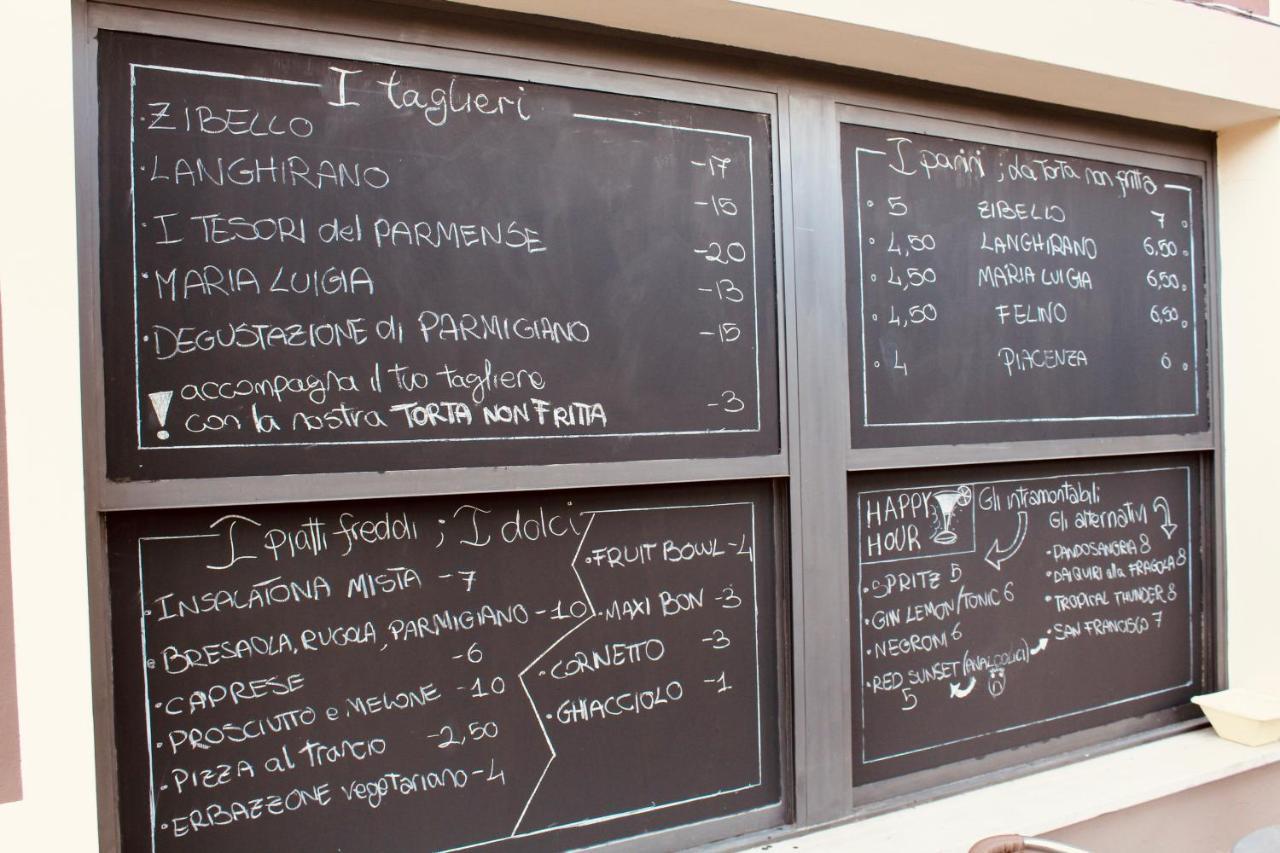 I taglieri
· ZIBELLO -17
· LANGHIRANO -15
· I TESORI del PARMENSE -20
· MARIA LUIGIA -13
· DEGUSTAZIONE di PARMIGIANO -15
! accompagna il tuo tagliere
con la nostra TORTA NON FRITTA -3
I panini ; da Torta non fritta
5 ZIBELLO 7
4,50 LANGHIRANO 6,50
4,50 MARIA LUIGIA 6,50
4,50 FELINO 6,50
4 PIACENZA 6
I piatti freddi ; I dolci
· INSALATONA MISTA -7
· BRESAOLA, RUGOLA, PARMIGIANO -10
· CAPRESE -6
· PROSCIUTTO e MELONE -10
· PIZZA al trancio -2,50
· ERBAZZONE vegetariano -4
· FRUIT BOWL -4
· MAXI BON -3
· CORNETTO -3
· GHIACCIOLO -1
HAPPY
HOUR
Gli intramontabili
· SPRITZ 5
· GIN LEMON/TONIC 6
· NEGRONI 6
· RED SUNSET (ANALCOLICI)
5
Gli alternativi
· DANDOSANGRIA 8
· DAIQUIRI alla FRAGOLA 8
· TROPICAL THUNDER 8
· SAN FRANCISCO 7